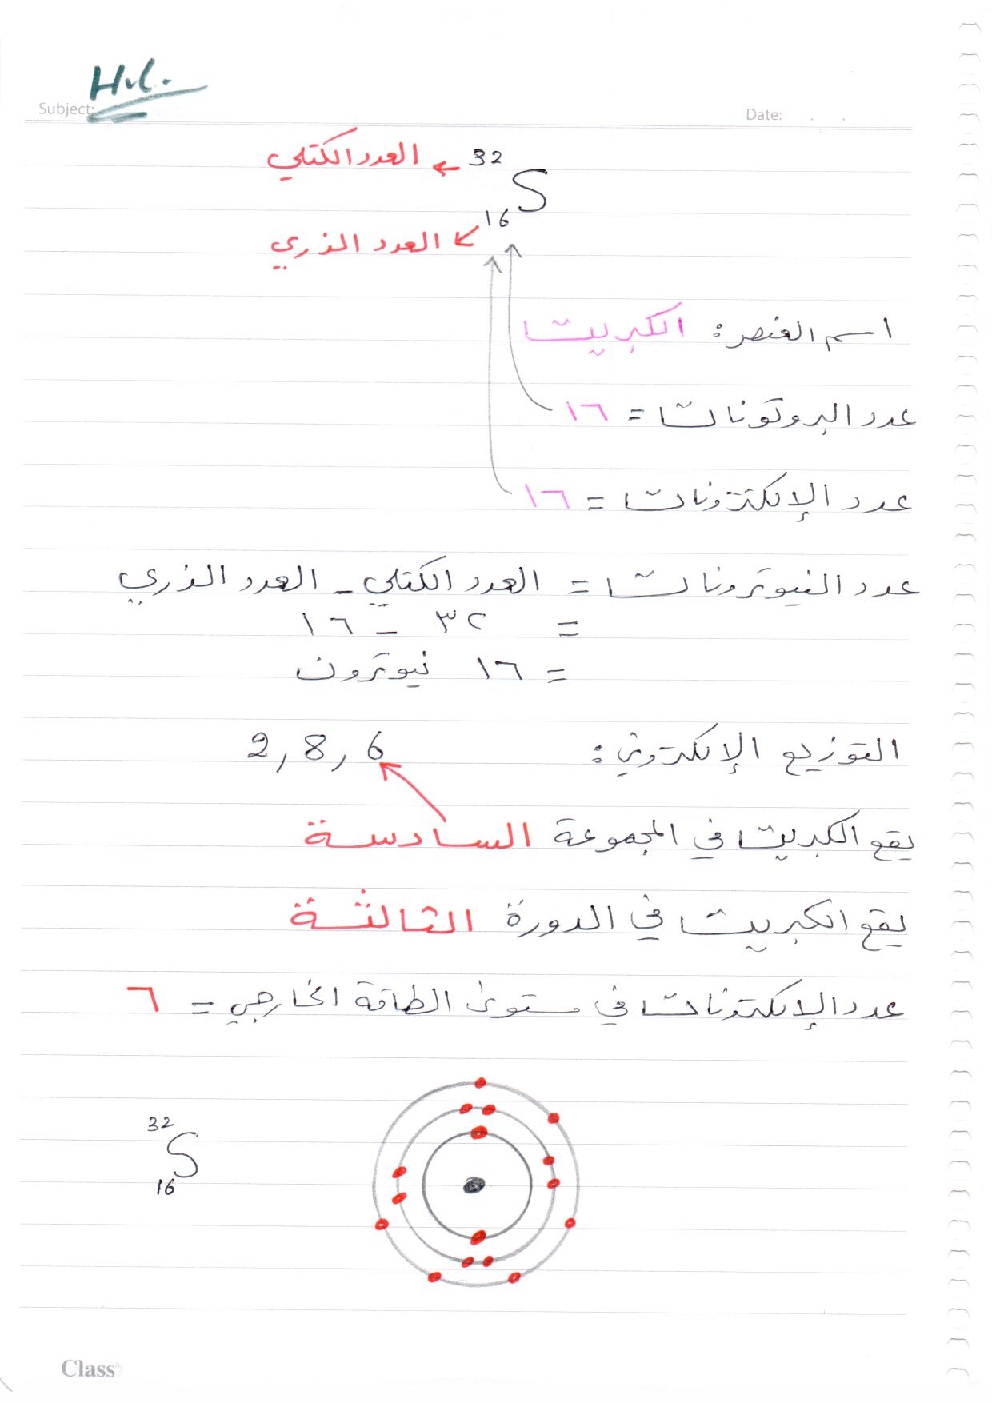 H.W.
Subject:
Date: . .
العدد الكتلي ← 32
S
العدد الذري ↙ 16
اسم العنصر: الكبريت
عدد البروتونات = ١٦
عدد الإلكترونات = ١٦
عدد النيوترونات = العدد الكتلي - العدد الذري
= ٣٢ - ١٦
= ١٦ نيوترون
التوزيع الإلكتروني: 2, 8, 6
يقع الكبريت في المجموعة السادسة
يقع الكبريت في الدورة الثالثة
عدد الإلكترونات في مستوى الطاقة الخارجي = ٦
32
S
16
Class